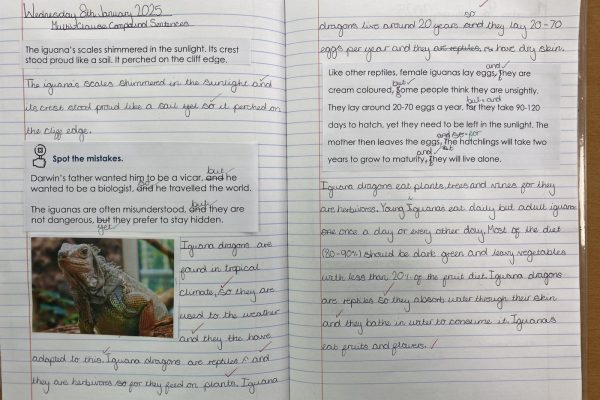 Wednesday 8th January 2025
Multi-Clause Compound Sentences
The iguana's scales shimmered in the sunlight. Its crest
stood proud like a sail. It perched on the cliff edge.
The iguana's scales shimmered in the sunlight and
its crest stood proud like a sail yet so it perched on
the cliff edge.
Spot the mistakes.
but
Darwin's father wanted him to be a vicar, and he
wanted to be a biologist, and he travelled the world.
and
but
The iguanas are often misunderstood, and they are
not dangerous, but they prefer to stay hidden.
yet
Iguana dragons are
found in tropical
climate, so they are
used to the weather
and they the have
adapted to this. Iguana dragons are reptiles and
they are herbivores so for they feed on plants. Iguana
so
dragons live around 20 years and they lay 20-70
eggs per year and they are reptiles have dry skin.
and
Like other reptiles, female iguanas lay eggs, They are
but
cream coloured, Some people think they are unsightly.
but and
They lay around 20-70 eggs a year, for they take 90-120
days to hatch, yet they need to be left in the sunlight. The
and so for
mother then leaves the eggs, The hatchlings will take two
and
years to grow to maturity, They will live alone.
Iguana dragons eat plants, trees and vines for they
are herbivores. Young Iguanas eat daily but adult iguana
one once a day or every other day. Most of the diet
(80-90%) should be dark green and leavy vegetables
with less than 20% of the fruit diet. Iguana dragons
are reptiles so they absorb water through their skin
and they bathe in water to consume it. Iguana's
eat fruits and flowers.